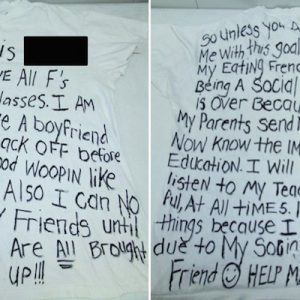 is
VE All F's
lasses. I AM
VE A boyfriend
ACK OFF before
OOD WOOPIN like
Also I can NO
Y Friends until
Are All Brought
UP!!!
SO Unless you
Me With this goa
My Eating Frenc
Being A Social
Is Over Becau
My Parents Send M
Now Know the IM
Education. I Will
listen to My Tea
Pul, At All tiMES. I
things because I
due to My Socia
Friend HELP M